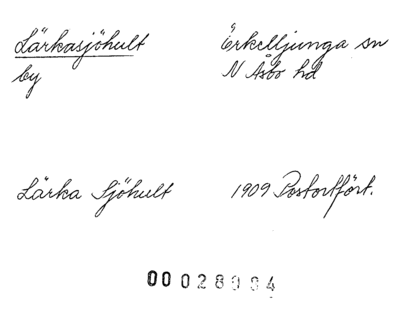 Lärkasjöhult
by
Örkelljunga sn
N Åsbo hd
Lärka Sjöhult
1909 Postortfört.